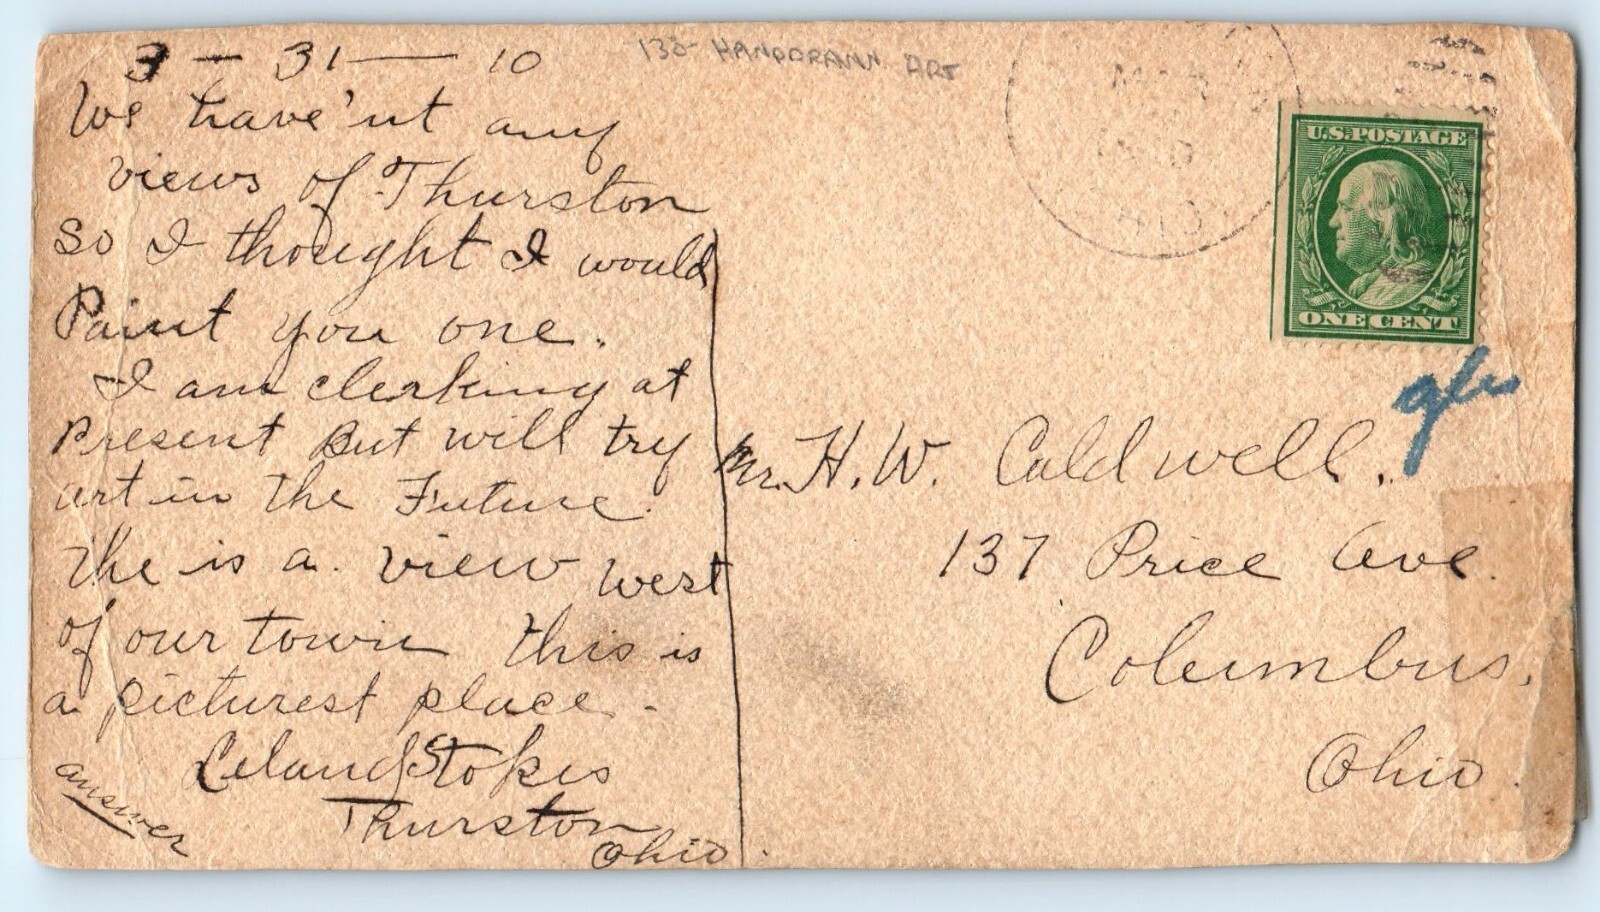 3 - 31 - 10
We have'nt any
views of Thurston
so I thought I would
Paint you one.
I am clerking at
Present But will try
art in the Future.
the is a view west
of our town this is
a picturest place.
Leland Stokes
Thurston
Ohio.
answer
130- HANDDRAWN ART
OHIO
U.S. POSTAGE
ONE CENT
Mr. H. W. Caldwell.
137 Price Ave.
Columbus,
Ohio.